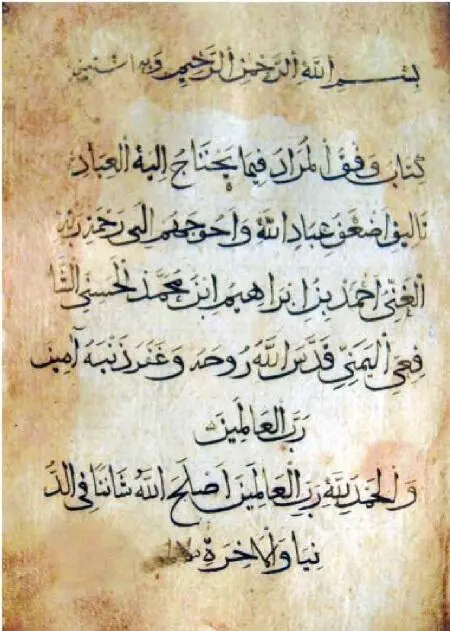 بسم الله الرحمن الرحيم وبه استعين
كتاب وفق المراد فيما يحتاج إليه العباد
تاليف اضعف عباد الله واحوجهم الى رحمة ربه
الغني احمد بن ابراهيم ابن محمد الحسني الشا
فعي اليمني قدس الله روحه وغفر ذنبه آمين
رب العالمين
والحمد لله رب العالمين اصلح الله شاننا في الد
نيا والاخرة